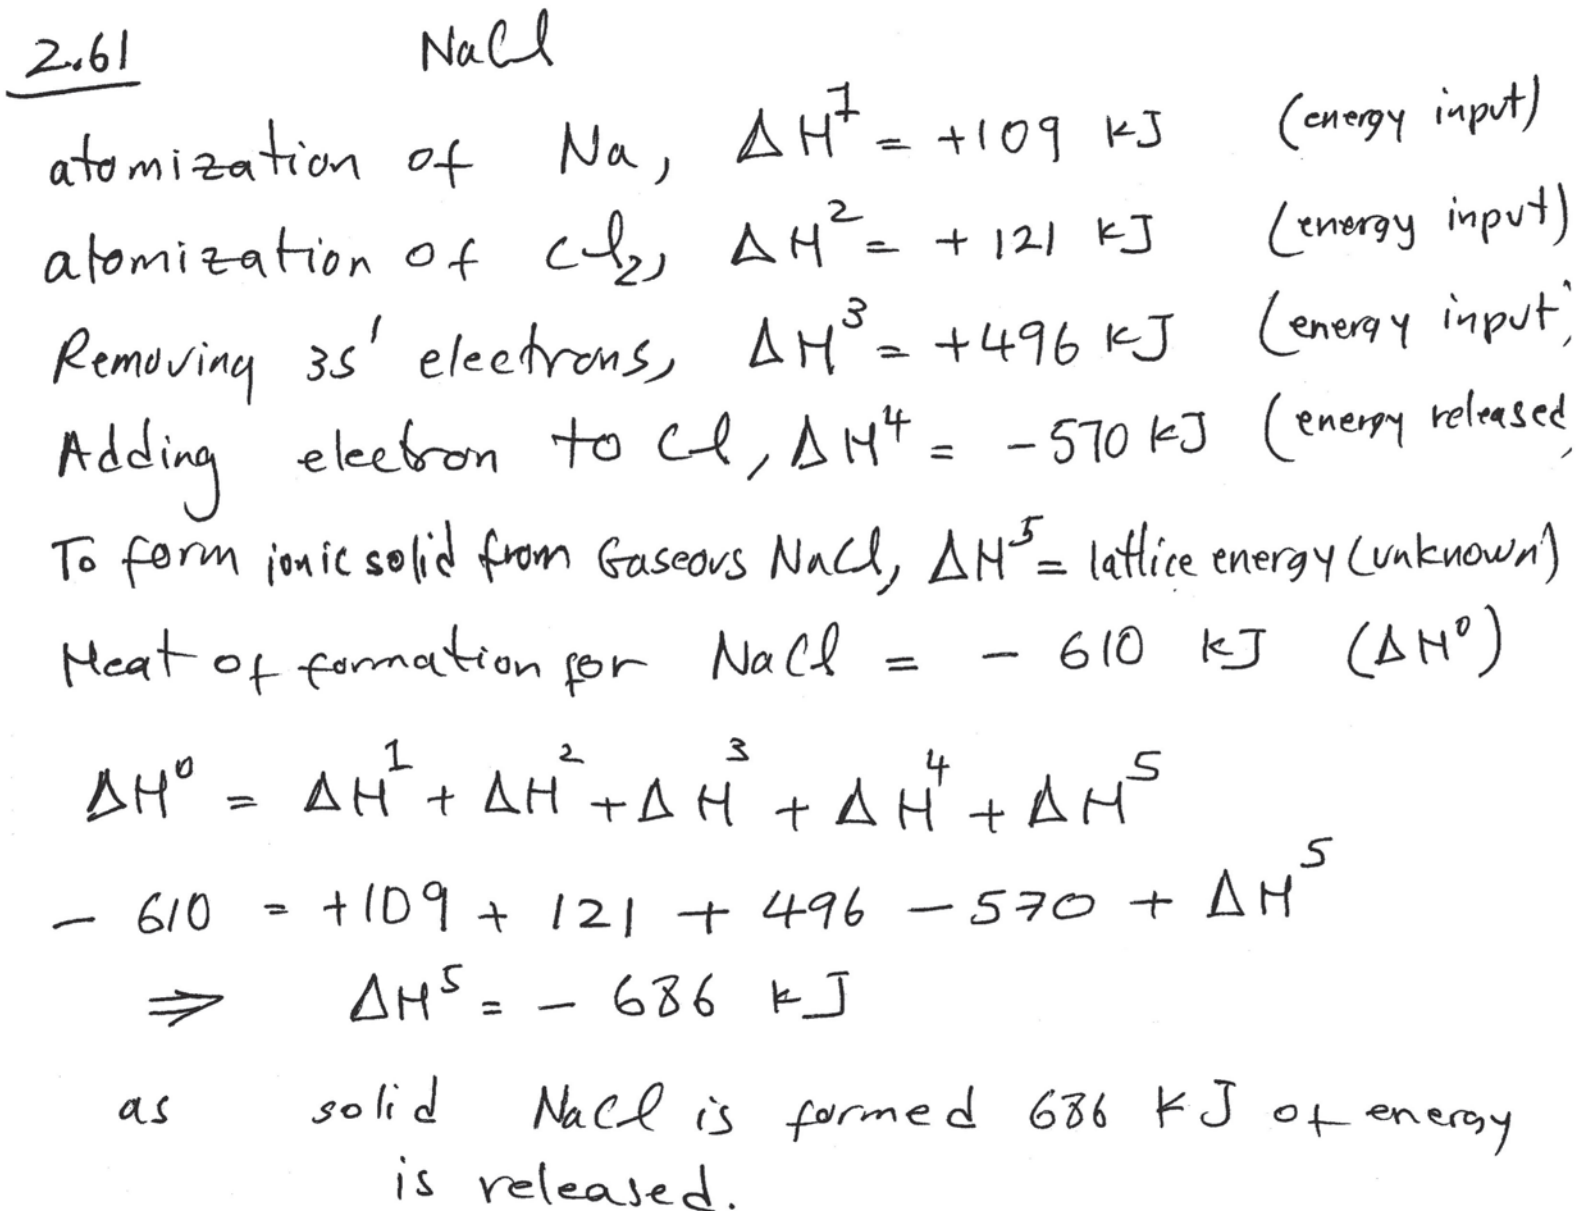 2.61 NaCl
atomization of Na, ΔH¹ = +109 kJ (energy input)
atomization of Cl₂, ΔH² = + 121 kJ (energy input)
Removing 3s' electrons, ΔH³ = +496 kJ (energy input)
Adding electron to Cl, ΔH⁴ = - 570 kJ (energy released)
To form ionic solid from Gaseous NaCl, ΔH⁵ = lattice energy (unknown)
Heat of formation for NaCl = - 610 kJ (ΔH⁰)
ΔH⁰ = ΔH¹ + ΔH² + ΔH³ + ΔH⁴ + ΔH⁵
- 610 = +109 + 121 + 496 - 570 + ΔH⁵
⇒ ΔH⁵ = - 686 kJ
as solid NaCl is formed 686 kJ of energy
is released.